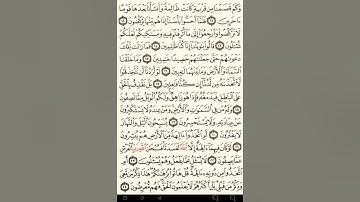 وَكَمْ قَصَمْنَا مِن قَرْيَةٍ كَانَتْ ظَالِمَةً وَأَنشَأْنَا بَعْدَهَا قَوْمًا
ءَاخَرِينَ ١١ فَلَمَّآ أَحَسُّوا۟ بَأْسَنَآ إِذَا هُم مِّنْهَا يَرْكُضُونَ ١٢
لَا تَرْكُضُوا۟ وَٱرْجِعُوٓا۟ إِلَىٰ مَآ أُتْرِفْتُمْ فِيهِ وَمَسَٰكِنِكُمْ لَعَلَّكُمْ
تُسْـَٔلُونَ ١٣ قَالُوا۟ يَٰوَيْلَنَآ إِنَّا كُنَّا ظَٰلِمِينَ ١٤ فَمَا زَالَت تِّلْكَ
دَعْوَىٰهُمْ حَتَّىٰ جَعَلْنَٰهُمْ حَصِيدًا خَٰمِدِينَ ١٥ وَمَا خَلَقْنَا
ٱلسَّمَآءَ وَٱلْأَرْضَ وَمَا بَيْنَهُمَا لَٰعِبِينَ ١٦ لَوْ أَرَدْنَآ أَن نَّتَّخِذَ لَهْوًا
لَّٱتَّخَذْنَٰهُ مِن لَّدُنَّآ إِن كُنَّا فَٰعِلِينَ ١٧ بَلْ نَقْذِفُ بِٱلْحَقِّ
عَلَى ٱلْبَٰطِلِ فَيَدْمَغُهُۥ فَإِذَا هُوَ زَاهِقٌ وَلَكُمُ ٱلْوَيْلُ مِمَّا تَصِفُونَ
١٨ وَلَهُۥ مَن فِى ٱلسَّمَٰوَٰتِ وَٱلْأَرْضِ وَمَنْ عِندَهُۥ لَا يَسْتَكْبِرُونَ
عَنْ عِبَادَتِهِۦ وَلَا يَسْتَحْسِرُونَ ١٩ يُسَبِّحُونَ ٱلَّيْلَ وَٱلنَّهَارَ
لَا يَفْتُرُونَ ٢٠ أَمِ ٱتَّخَذُوٓا۟ ءَالِهَةً مِّنَ ٱلْأَرْضِ هُمْ يُنشِرُونَ ٢١
لَوْ كَانَ فِيهِمَآ ءَالِهَةٌ إِلَّا ٱللَّهُ لَفَسَدَتَا فَسُبْحَٰنَ ٱللَّهِ رَبِّ ٱلْعَرْشِ
عَمَّا يَصِفُونَ ٢٢ لَا يُسْـَٔلُ عَمَّا يَفْعَلُ وَهُمْ يُسْـَٔلُونَ ٢٣ أَمِ
ٱتَّخَذُوا۟ مِن دُونِهِۦٓ ءَالِهَةً قُلْ هَاتُوا۟ بُرْهَٰنَكُمْ هَٰذَا ذِكْرُ مَن مَّعِىَ
وَذِكْرُ مَن قَبْلِى بَلْ أَكْثَرُهُمْ لَا يَعْلَمُونَ ٱلْحَقَّ فَهُم مُّعْرِضُونَ ٢٤